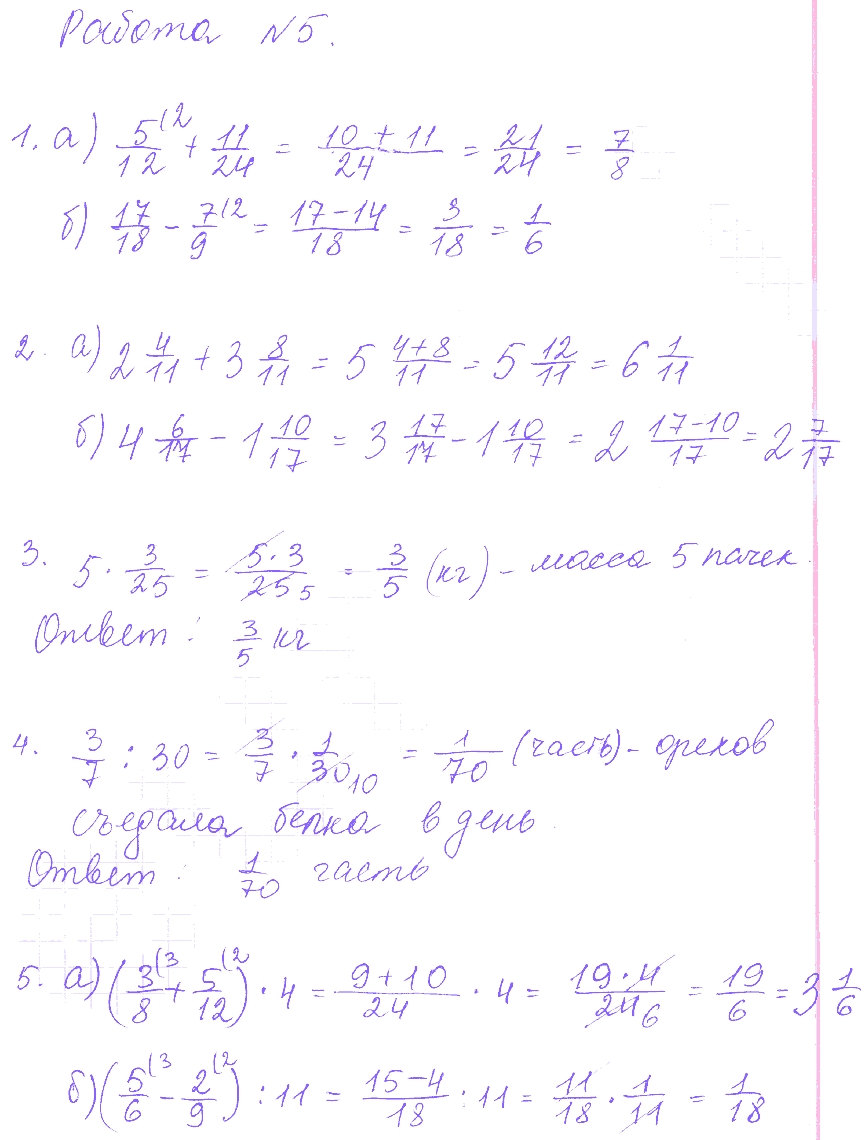 Работа №5.
1. а) 5/12 (2 + 11/24 = (10 + 11)/24 = 21/24 = 7/8
б) 17/18 - 7/9 (2 = (17-14)/18 = 3/18 = 1/6
2. а) 2 4/11 + 3 8/11 = 5 (4+8)/11 = 5 12/11 = 6 1/11
б) 4 6/17 - 1 10/17 = 3 17/17 - 1 10/17 = 2 (17-10)/17 = 2 7/17
3. 5 · 3/25 = (5·3)/25 5 = 3/5 (кг) - масса 5 пачек
Ответ: 3/5 кг
4. 3/7 : 30 = 3/7 · 1/30 10 = 1/70 (часть) - орехов
съедала белка в день
Ответ: 1/70 часть
5. а) (3/8 (3 + 5/12 (2) · 4 = (9+10)/24 · 4 = (19·4)/24 6 = 19/6 = 3 1/6
б) (5/6 (3 - 2/9 (2) : 11 = (15-4)/18 : 11 = 11/18 · 1/11 = 1/18